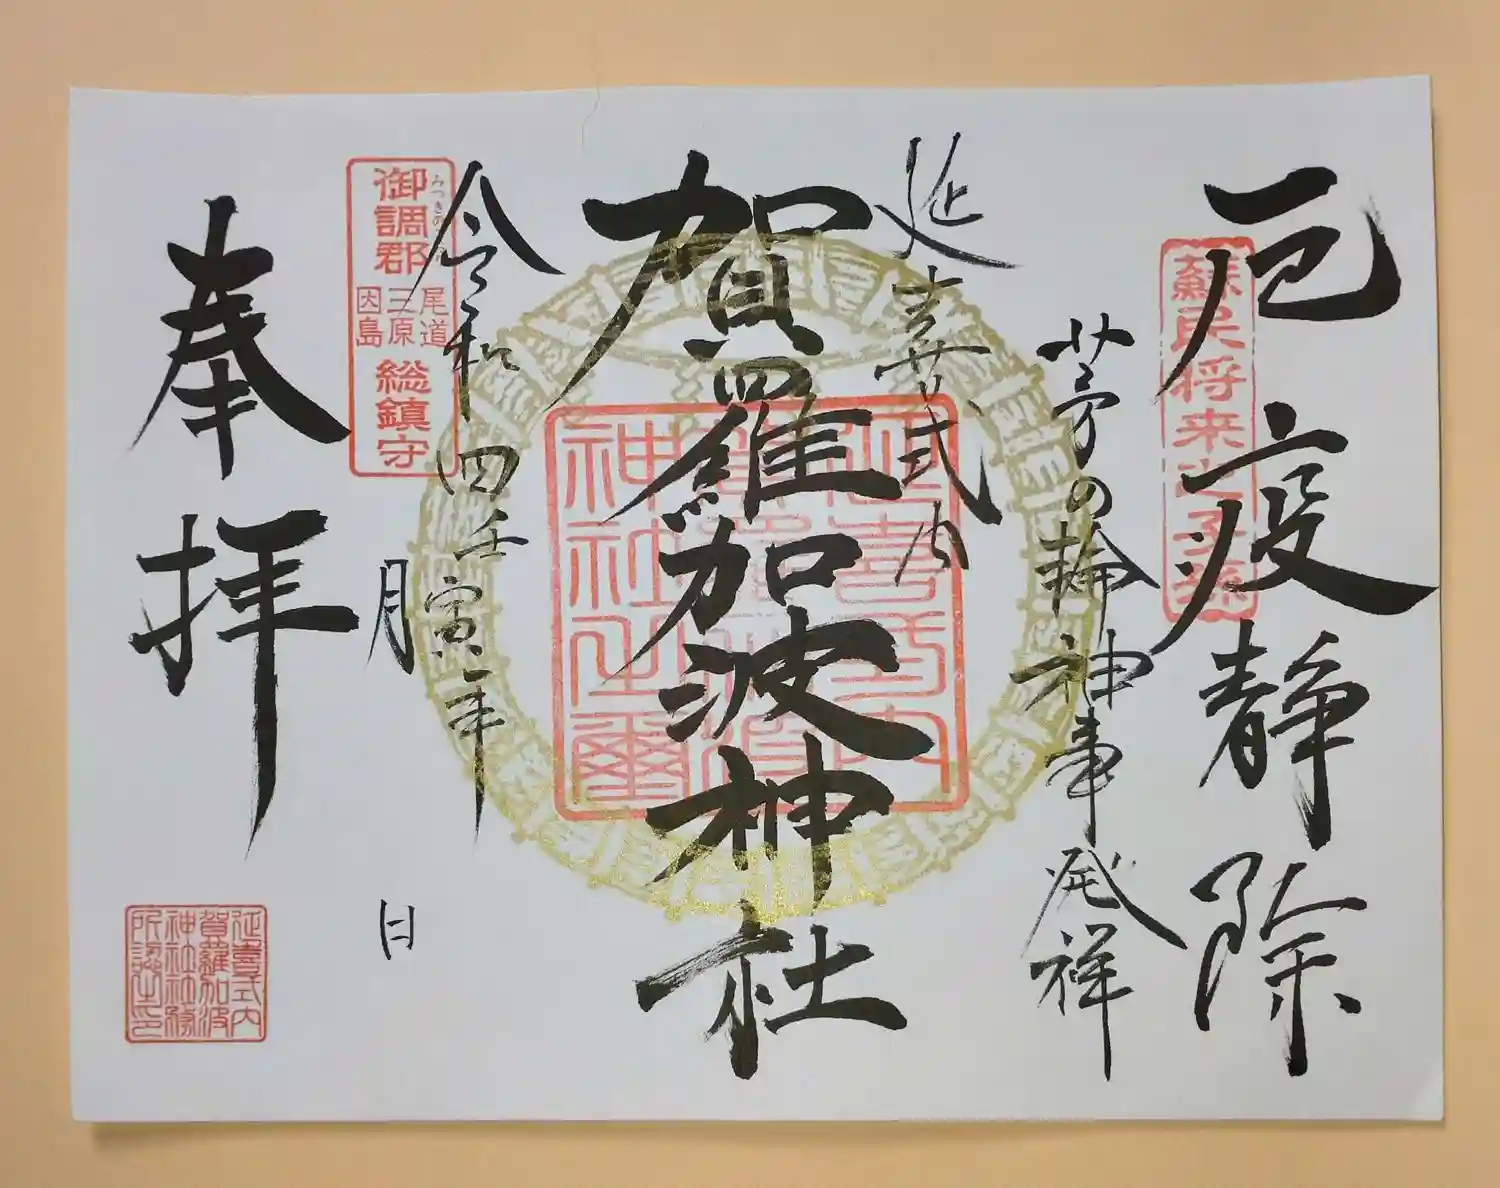 厄疫静除
蘇民将来之子孫
茅の輪神事発祥
延喜式内
賀羅加波神社
令和四壬寅年
月
日
御調郡
みつきの
尾道
三原
因島
総鎮守
奉拝
延喜式内
賀羅加波
神社社務
所認之印